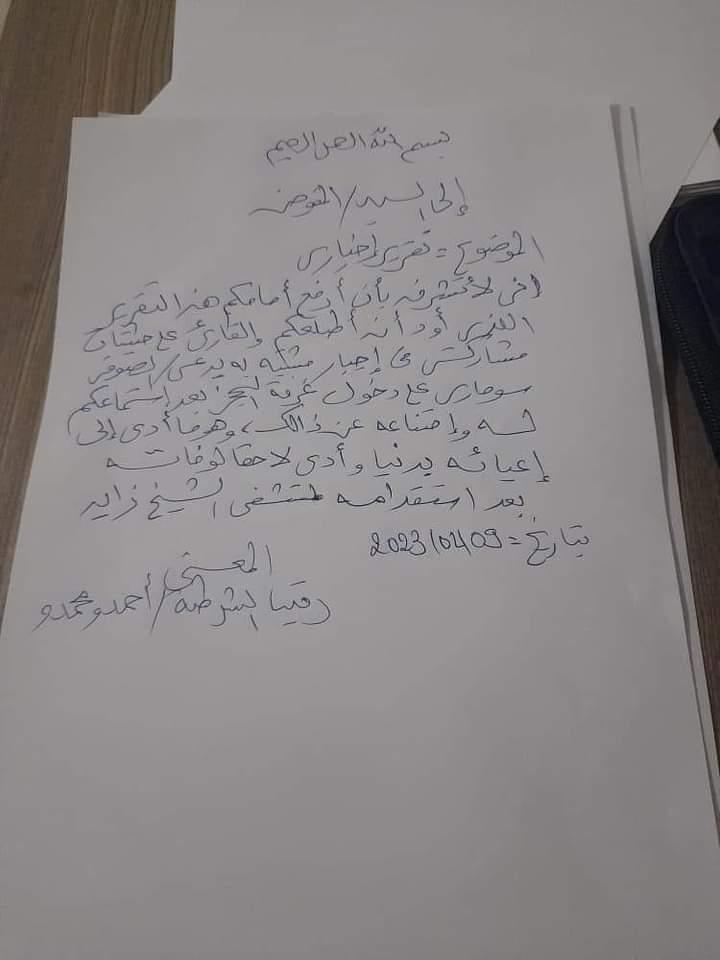 بسم الله الرحمن الرحيم
إلى السيد/المفوض
الموضوع = تقرير إخباري
إني لأتشرف بأن أرفع أمامكم هذ التقرير
الذي أود أن أطلعكم والقارئ على حيثيات
مشاركتي في إجبار مشتبه به يدعى/الصوفي
سوماري على دخول غرفة الحجز بعد استماعكم
له وامتناعه عن ذالك، وهو ما أدى إلى
إعيائه بدنيا وأدى لاحقا لوفاته
بعد استقدامه لمستشفى الشيخ زايد
بتاريخ = 2023/04/09
المعني
رقيب الشرطة/أحمدو محمدو